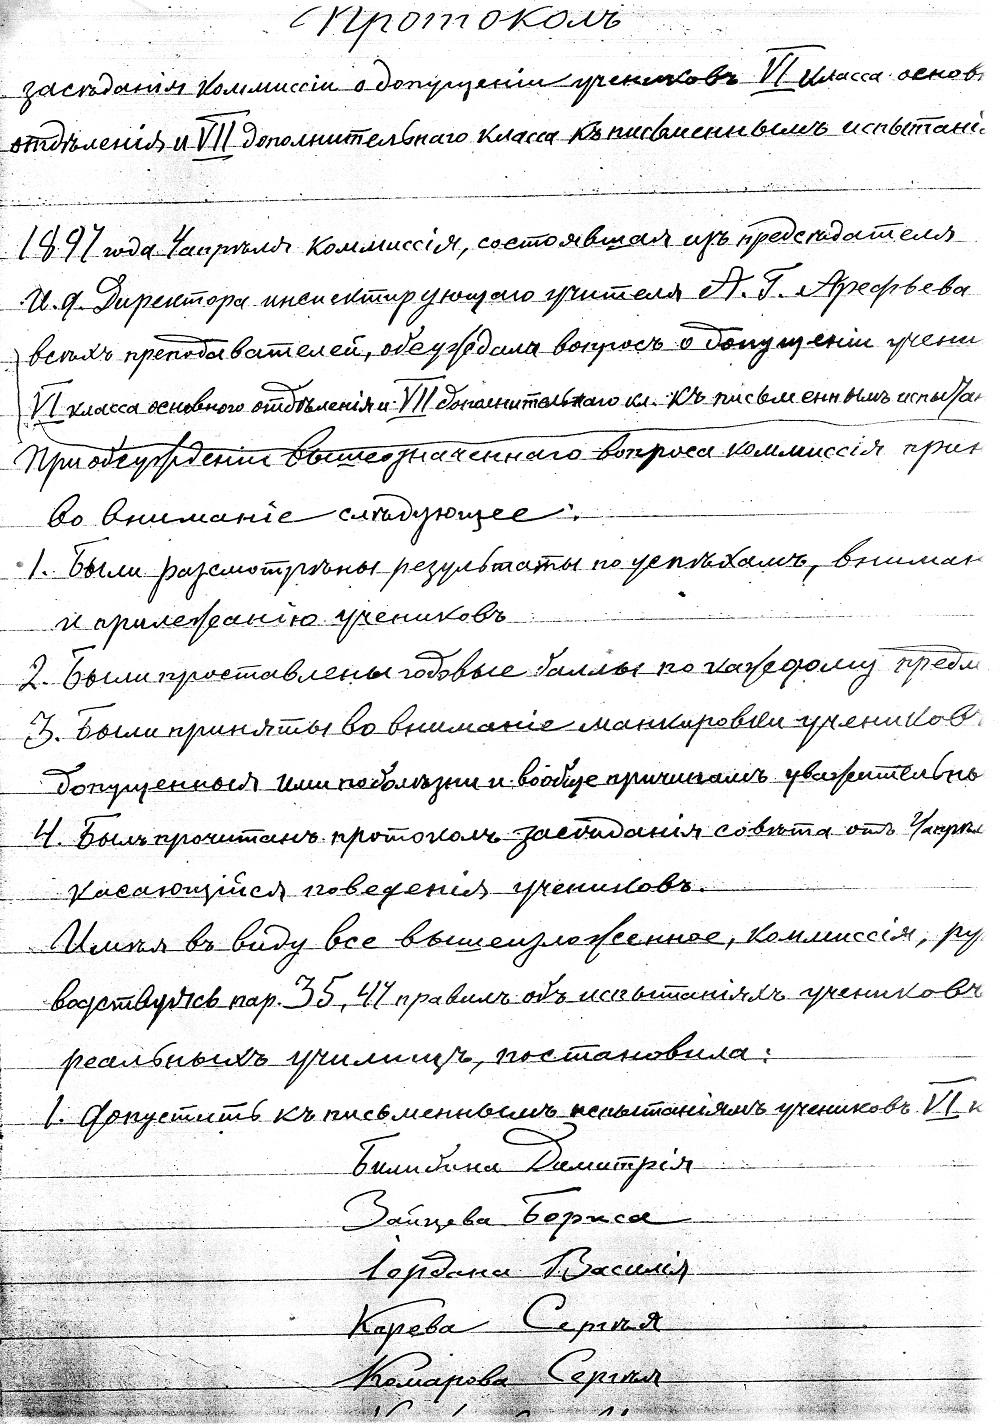 Протоколъ
засѣданія коммиссіи о допущеніи учениковъ VI класса основ
отдѣленія и VII дополнительнаго класса къ письменнымъ испытані
1897 года 4 апрѣля коммиссія, состоявшая изъ предсѣдателя
И. д. Директора инспектирующаго учителя А. Г. Арефьева
всѣхъ преподавателей, обсуждала вопросъ о допущеніи учени
VI класса основного отдѣленія и VII дополнительнаго кл. къ письменнымъ испытан
При обсужденіи вышеозначеннаго вопроса коммиссія прин
во вниманіе слѣдующее:
1. Были разсмотрѣны результаты по успѣхамъ, вниман
и прилежанію учениковъ
2. Были проставлены годовые баллы по каждому предм
3. Были приняты во вниманіе манкировки учениковъ
допущенныя ими по болѣзни и вообще причинамъ уважительны
4. Былъ прочитанъ протоколъ засѣданія совѣта отъ 4 апрѣл
касающійся поведенія учениковъ.
Имѣя въ виду все вышеизложенное, коммиссія, ру
водствуясь пар. 35, 47 правилъ объ испытаніяхъ учениковъ
реальныхъ училищъ, постановила:
1. Допустить къ письменнымъ испытаніямъ учениковъ VI к
Билибина Димитрія
Зайцева Бориса
Іордана Василія
Карева Сергѣя
Комарова Сергѣя